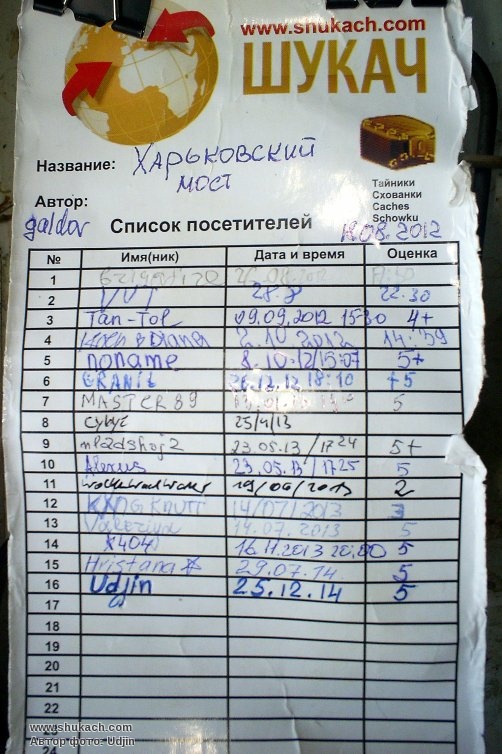 www.shukach.com
ШУКАЧ
Название: Харьковский
мост
Тайники
Схованки
Caches
Schowku
Автор:
galdor Список посетителей 18.08.2012
№ Имя(ник) Дата и время Оценка
1
2 28.8 22.30
3 Tan-Tol 09.09.2012 15:30 4+
4 2.10 2012 14:59
5 noname 8.10-12/15:07 5+
6 GRANIT 26.12.12 18:10 +5
7 MASTER89 5
8 25/4/13
9 mladshoj2 23.05.13/17 24 5+
10 Alexus 23.05.13/17 25 5
11 19/06/2013 2
12 14/07/2013
13 Valerium 14.07.2013 5
14 X404 16.11.2013 20:00 5
15 Hristana 29.07.14 5
16 Udjin 25.12.14 5
17
18
19
20
21
22
23
24
www.shukach.com
Автор фото: Udjin